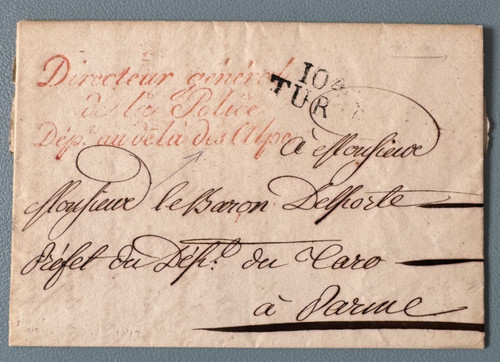 Directeur général
de la Police
Dépt. au délà des Alpes
104
TUR
à Monsieur
Monsieur le Baron Delporte
Préfet du Dépt. du Taro
à Parme